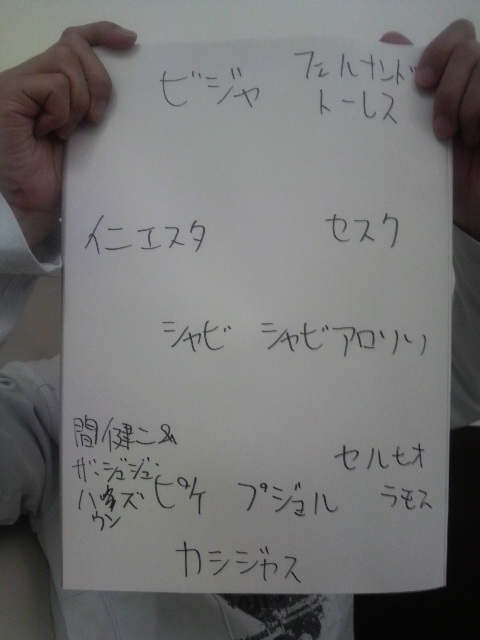 ビジャ
フェルナンド
トーレス
イニエスタ
セスク
シャビ
シャビアロンソ
間健二&
ザ・ジョジョ・
ハウンズ
ピケ
プジョル
セルヒオ
ラモス
カシジャス